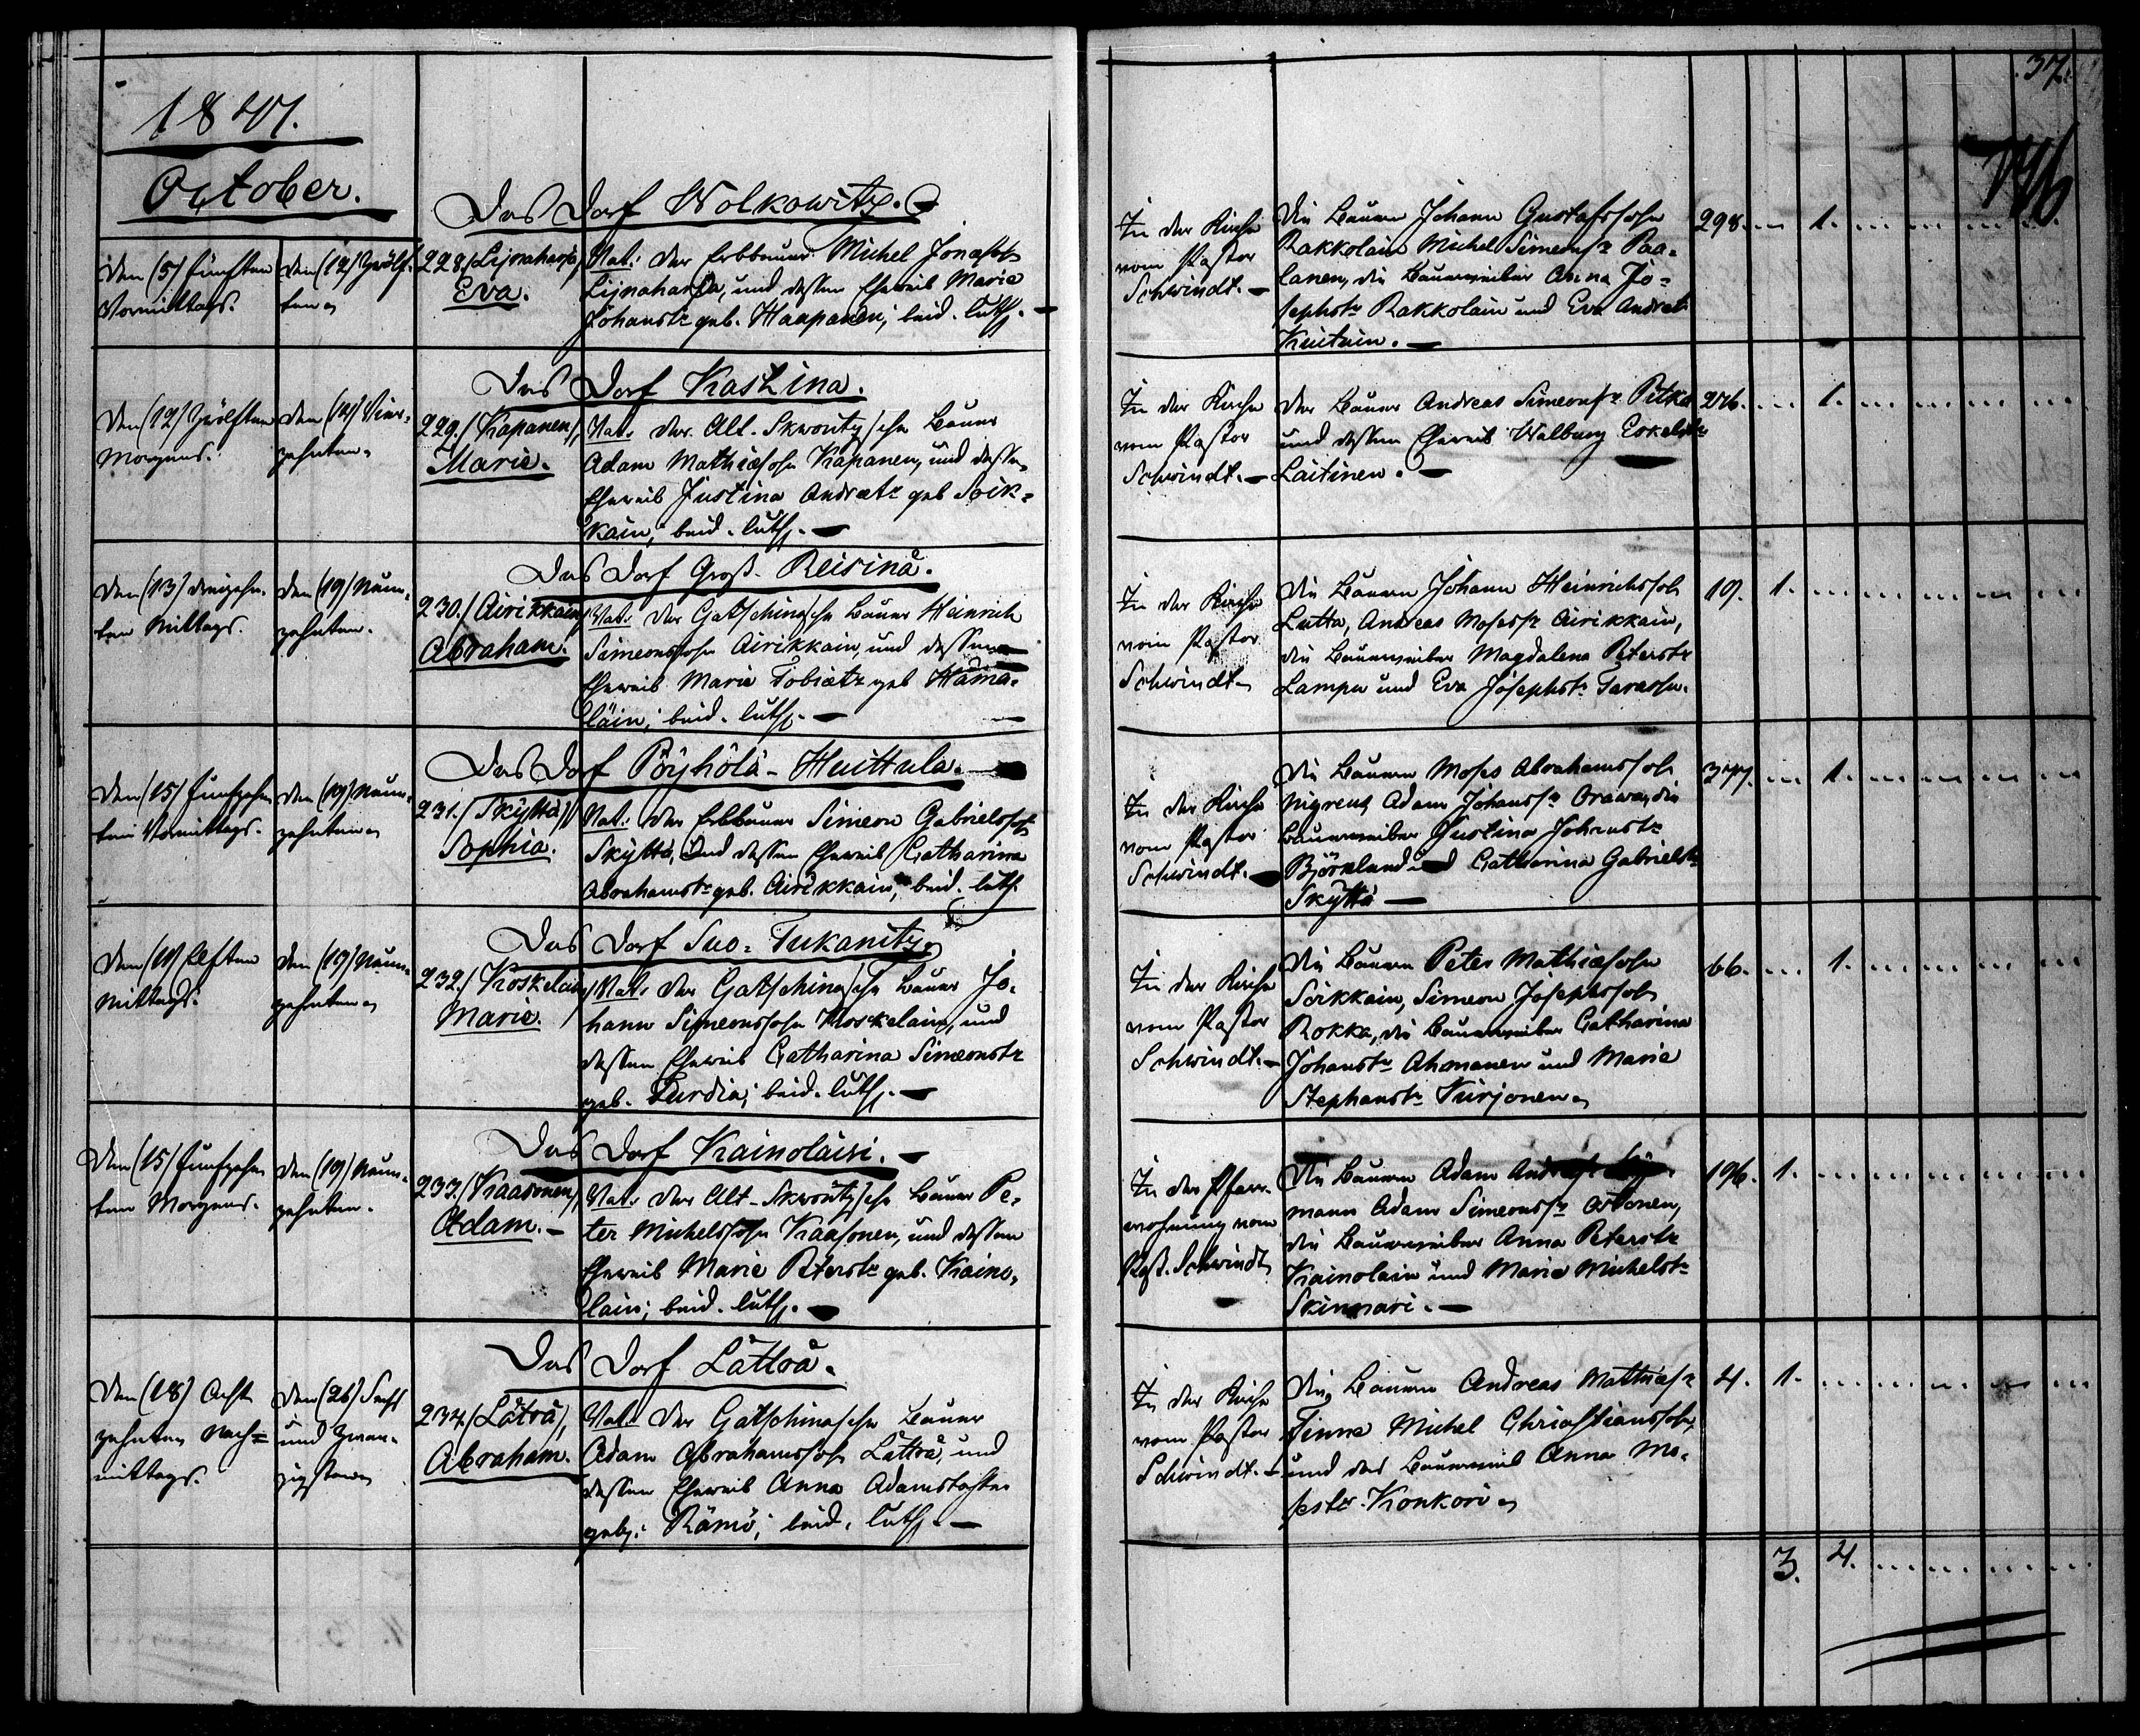 37.
1847.
October.
Das Dorf Wolkowitz.
Den (5) fünften
Vormittags.
Den (12) Zwölf-
ten
228./Lijnaharja,
Eva.
Vat: der Erbbauer Michel Jonassohn
Lijnaharja, und dessen Eheweib Marie
Johanstr geb. Haapanen; beid. luth.
In der Kirche
vom Pastor
Schwindt.
Die Bauern Johann Gustafssohn
Rakkolain Michel Simeonssr Paa-
lanen, die Bauerweiber Anna Jo-
sephstr Rakkolain und Eva Andreastr
Kuitain.
298. 1.
Das Dorf Kaslina.
Den (12) Zwölften
Morgens.
Den (14) Vier-
zehnten.
229./Kapanen/,
Marie.
Vat: der Alt-Skworitzsche Bauer
Adam Mathiassohn Kapanen, und dessen
Eheweib Justina Andreatr geb Soik-
kain; beid. luth.
In der Kirche
vom Pastor
Schwindt.
Der Bauer Andreas Simeonssr Pitka
und dessen Eheweib Walburg Eskelstr
Laitinen.
276. 1.
Das Dorf Groß-Reisinä.
Den (13) dreizehn-
ten Mittags.
Den (19) Neun-
zehnten.
230./Airikkain/
Abraham.
Vat: der Gatschinasche Bauer Heinrich
Simeonssohn Airikkain, und dessen
Eheweib Marie Tobiatr geb Hämä-
läin; beid. luth.
In der Kirche
vom Pastor
Schwindt
Die Bauern Johann Heinrichssohn
Lutta, Andreas Mosessr Airikkain,
die Bauerweiber Magdalena Peterstr
Lampu und Eva Josephstr Tarassu.
19. 1.
Das Dorf Pöyhölä-Huittula.
Den (15) fünfzehn-
ten Vormittags.
Den (19) Neun-
zehnten
231./Skyttä/
Sophia.
Vat: der Erbbauer Simeon Gabrielssohn
Skyttä, und dessen Eheweib Catharina
Abrahamstr geb. Airikkain; beid. luth.
In der Kirche
vom Pastor
Schwindt.
Die Bauern Moses Abrahamssohn
Nigreus, Adam Johanssr Orawa, die
Bauerweiber Justina Johanstr
Björklund und Catharina Gabrielstr
Skyttä
377. 1.
Das Dorf Suo-Tukanitz
Den (11) Elften
Mittags.
Den (19) Neun-
zehnten
232./Koskelain/
Marie.
Vat: der Gatschinasche Bauer Jo-
hann Simeonssohn Koskelain, und
dessen Eheweib Catharina Simeonstr
geb. Turdia; beid. luth.
In der Kirche
vom Pastor
Schwindt.
Die Bauern Peter Mathiassohn
Soikkain, Simeon Josephssohn
Rokka, die Bauerweiber Catharina
Johanstr Ahmanen und Marie
Stephanstr Kurjonen
66. 1.
Das Dorf Kainolaisi.
Den (15) fünfzehn-
ten Morgens.
Den (19) Neun-
zehnten.
233./Kaasonen/,
Adam.
Vat: der Alt-Skworitzsche Bauer Pe-
ter Michelssohn Kaasonen, und dessen
Eheweib Marie Peterstr geb. Kaino-
lain; beid. luth.
In der Pfarr-
wohnung vom
Past. Schwindt
Die Bauern Adam
mann Adam Simeonssr
die Bauerweiber Anna Peterstr
Kainolain und Maria Michelstr
Skinnari.
196. 1.
Das Dorf Lättvä.
Den (18) Acht-
zehnten Nach-
mittags.
Den (26) Sechs
und zwan-
zigsten
234./Lätvä/,
Abraham.
Vat: der Gatschinasche Bauer
Adam Abrahamssohn Lättvä, und
dessen Eheweib Anna Adamstochter
geb: Rämö; beid. luth.
In der Kirche
vom Pastor
Schwindt.
Die Bauern Andreas Mathiassr
Tinna Michel Christianssohn,
und das Bauerweib Anna Mo-
sestr. Konkori
4. 1.
3. 4.